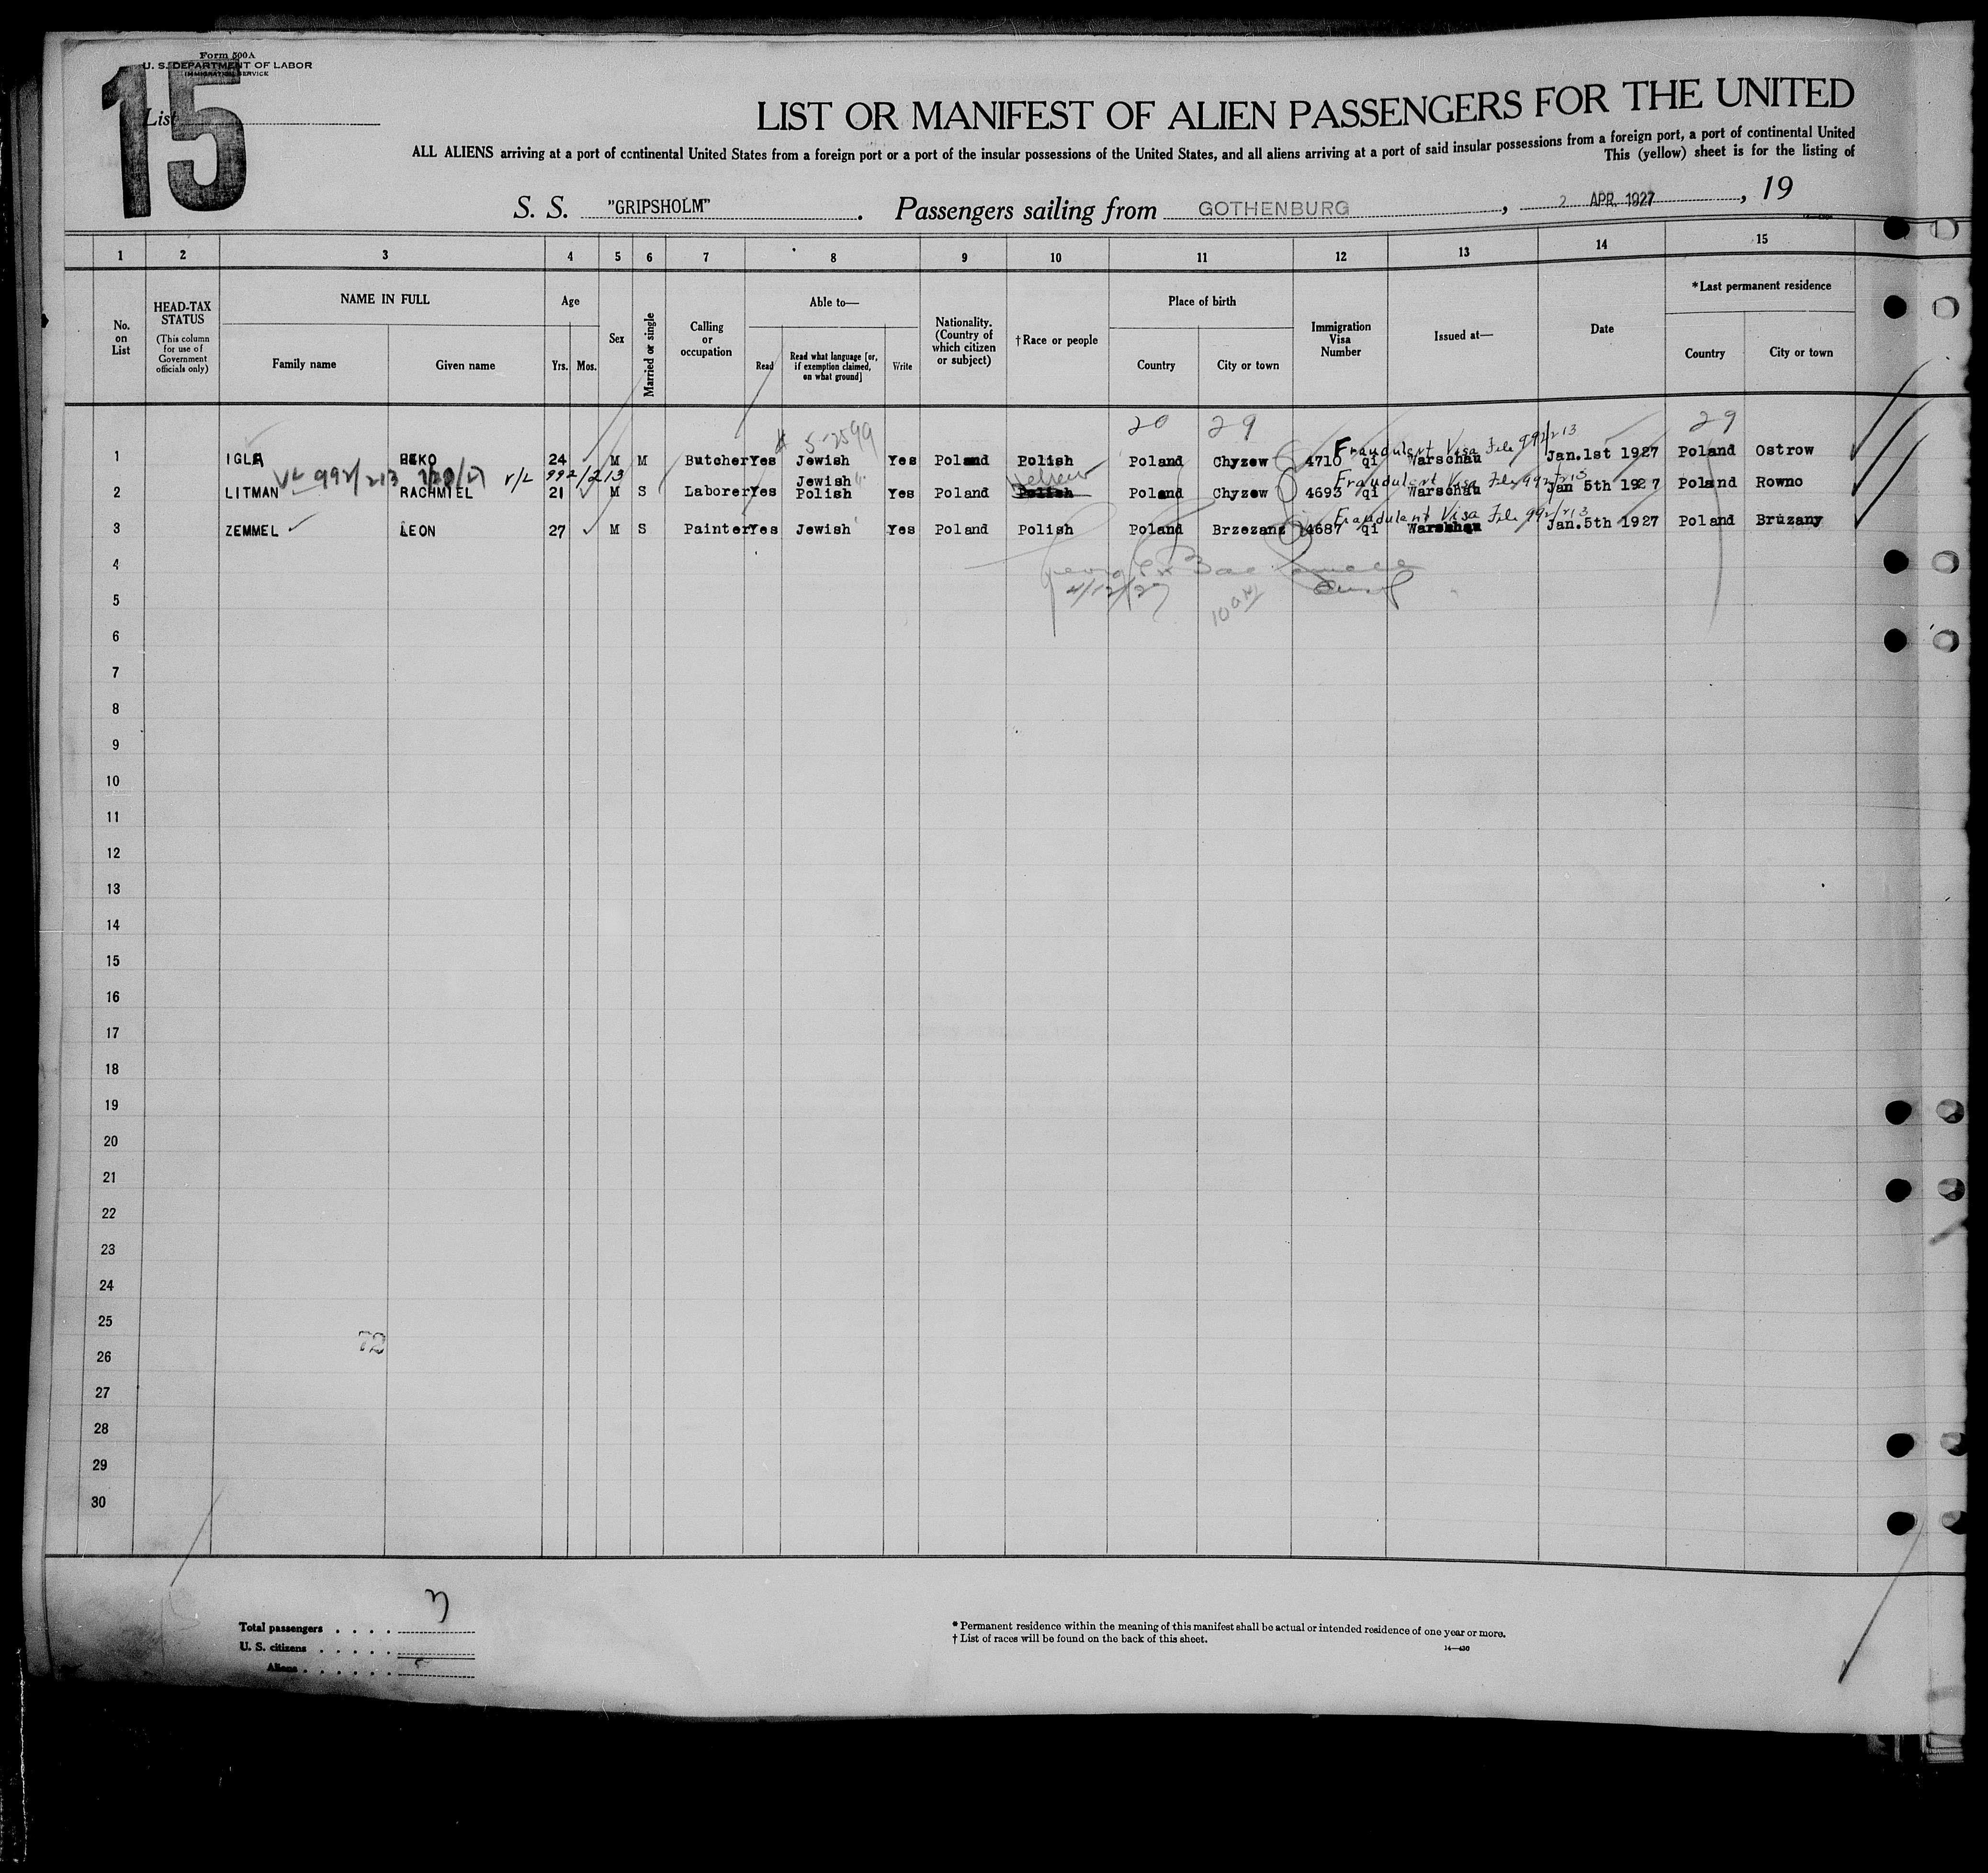 Form 500A
U. S. DEPARTMENT OF LABOR
IMMIGRATION SERVICE
15
List
LIST OR MANIFEST OF ALIEN PASSENGERS FOR THE UNITED
ALL ALIENS arriving at a port of continental United States from a foreign port or a port of the insular possessions of the United States, and all aliens arriving at a port of said insular possessions from a foreign port, a port of continental United
This (yellow) sheet is for the listing of
S. S. "GRIPSHOLM". Passengers sailing from GOTHENBURG, 2 APR. 1927, 19
1 2 3 4 5 6 7 8 9 10 11 12 13 14 15
No. on List
HEAD-TAX STATUS
(This column for use of Government officials only)
NAME IN FULL
Family name Given name
Age
Yrs. Mos.
Sex
Married or single
Calling or occupation
Able to—
Read
Read what language [or, if exemption claimed, on what ground]
Write
Nationality. (Country of which citizen or subject)
†Race or people
Place of birth
Country City or town
Immigration Visa Number
Issued at—
Date
*Last permanent residence
Country City or town
5-2599 20 29 29
Fraudulent Visa File 992/213
1 IGLA 24 M M Butcher Yes Jewish Yes Poland Polish Poland Chyzew 4710 qi Warschau Jan.1st 1927 Poland Ostrow
VL 992/213 r/L 992/213 Jewish Hebrew Fraudulent Visa File 992/213
2 LITMAN RACHMIEL 21 M S Laborer Yes Polish Yes Poland Polish Poland Chyzew 4693 qi Warschau Jan 5th 1927 Poland Rowno
Fraudulent Visa File 992/213
3 ZEMMEL LEON 27 M S Painter Yes Jewish Yes Poland Polish Poland Brzezanz 4687 qi Warschau Jan.5th 1927 Poland Bruzany
4
5 4/12/27 10 AM
6
7
8
9
10
11
12
13
14
15
16
17
18
19
20
21
22
23
24
25
72
26
27
28
29
30
Total passengers . . . . 3
U. S. citizens . . . . .
Aliens . . . . . .
* Permanent residence within the meaning of this manifest shall be actual or intended residence of one year or more.
† List of races will be found on the back of this sheet.
14—430